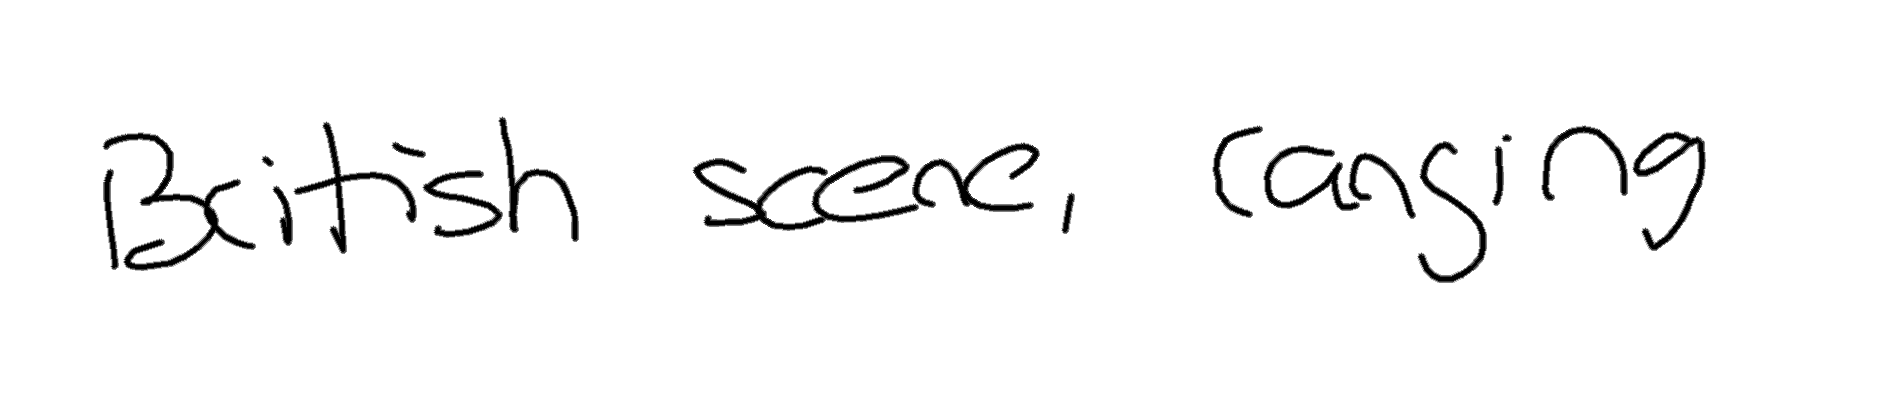 British scene, ranging